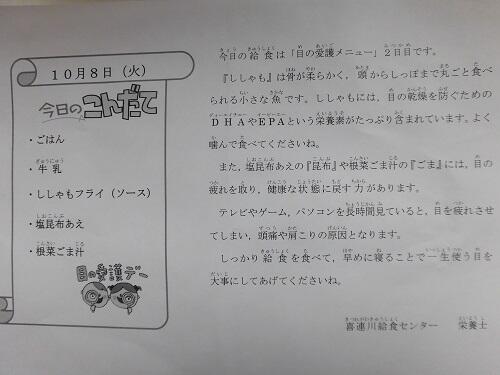 10月8日（火）
今日のこんだて
・ごはん
・牛乳
・ししゃもフライ（ソース）
・塩昆布あえ
・根菜ごま汁
目の愛護デー
今日の給食は「目の愛護メニュー」2日目です。
『ししゃも』は骨が柔らかく，頭からしっぽまで丸ごと食べ
られる小さな魚です。ししゃもには，目の乾燥を防ぐための
DHAやEPAという栄養素がたっぷり含まれています。よく
噛んで食べてくださいね。
また，塩昆布あえの『昆布』や根菜ごま汁の『ごま』には，目の
疲れを取り，健康な状態に戻す力があります。
テレビやゲーム，パソコンを長時間見ていると，目を疲れさせ
てしまい，頭痛や肩こりの原因となります。
しっかり給食を食べて，早めに寝ることで一生使う目を
大事にしてあげてくださいね。
喜連川給食センター　栄養士